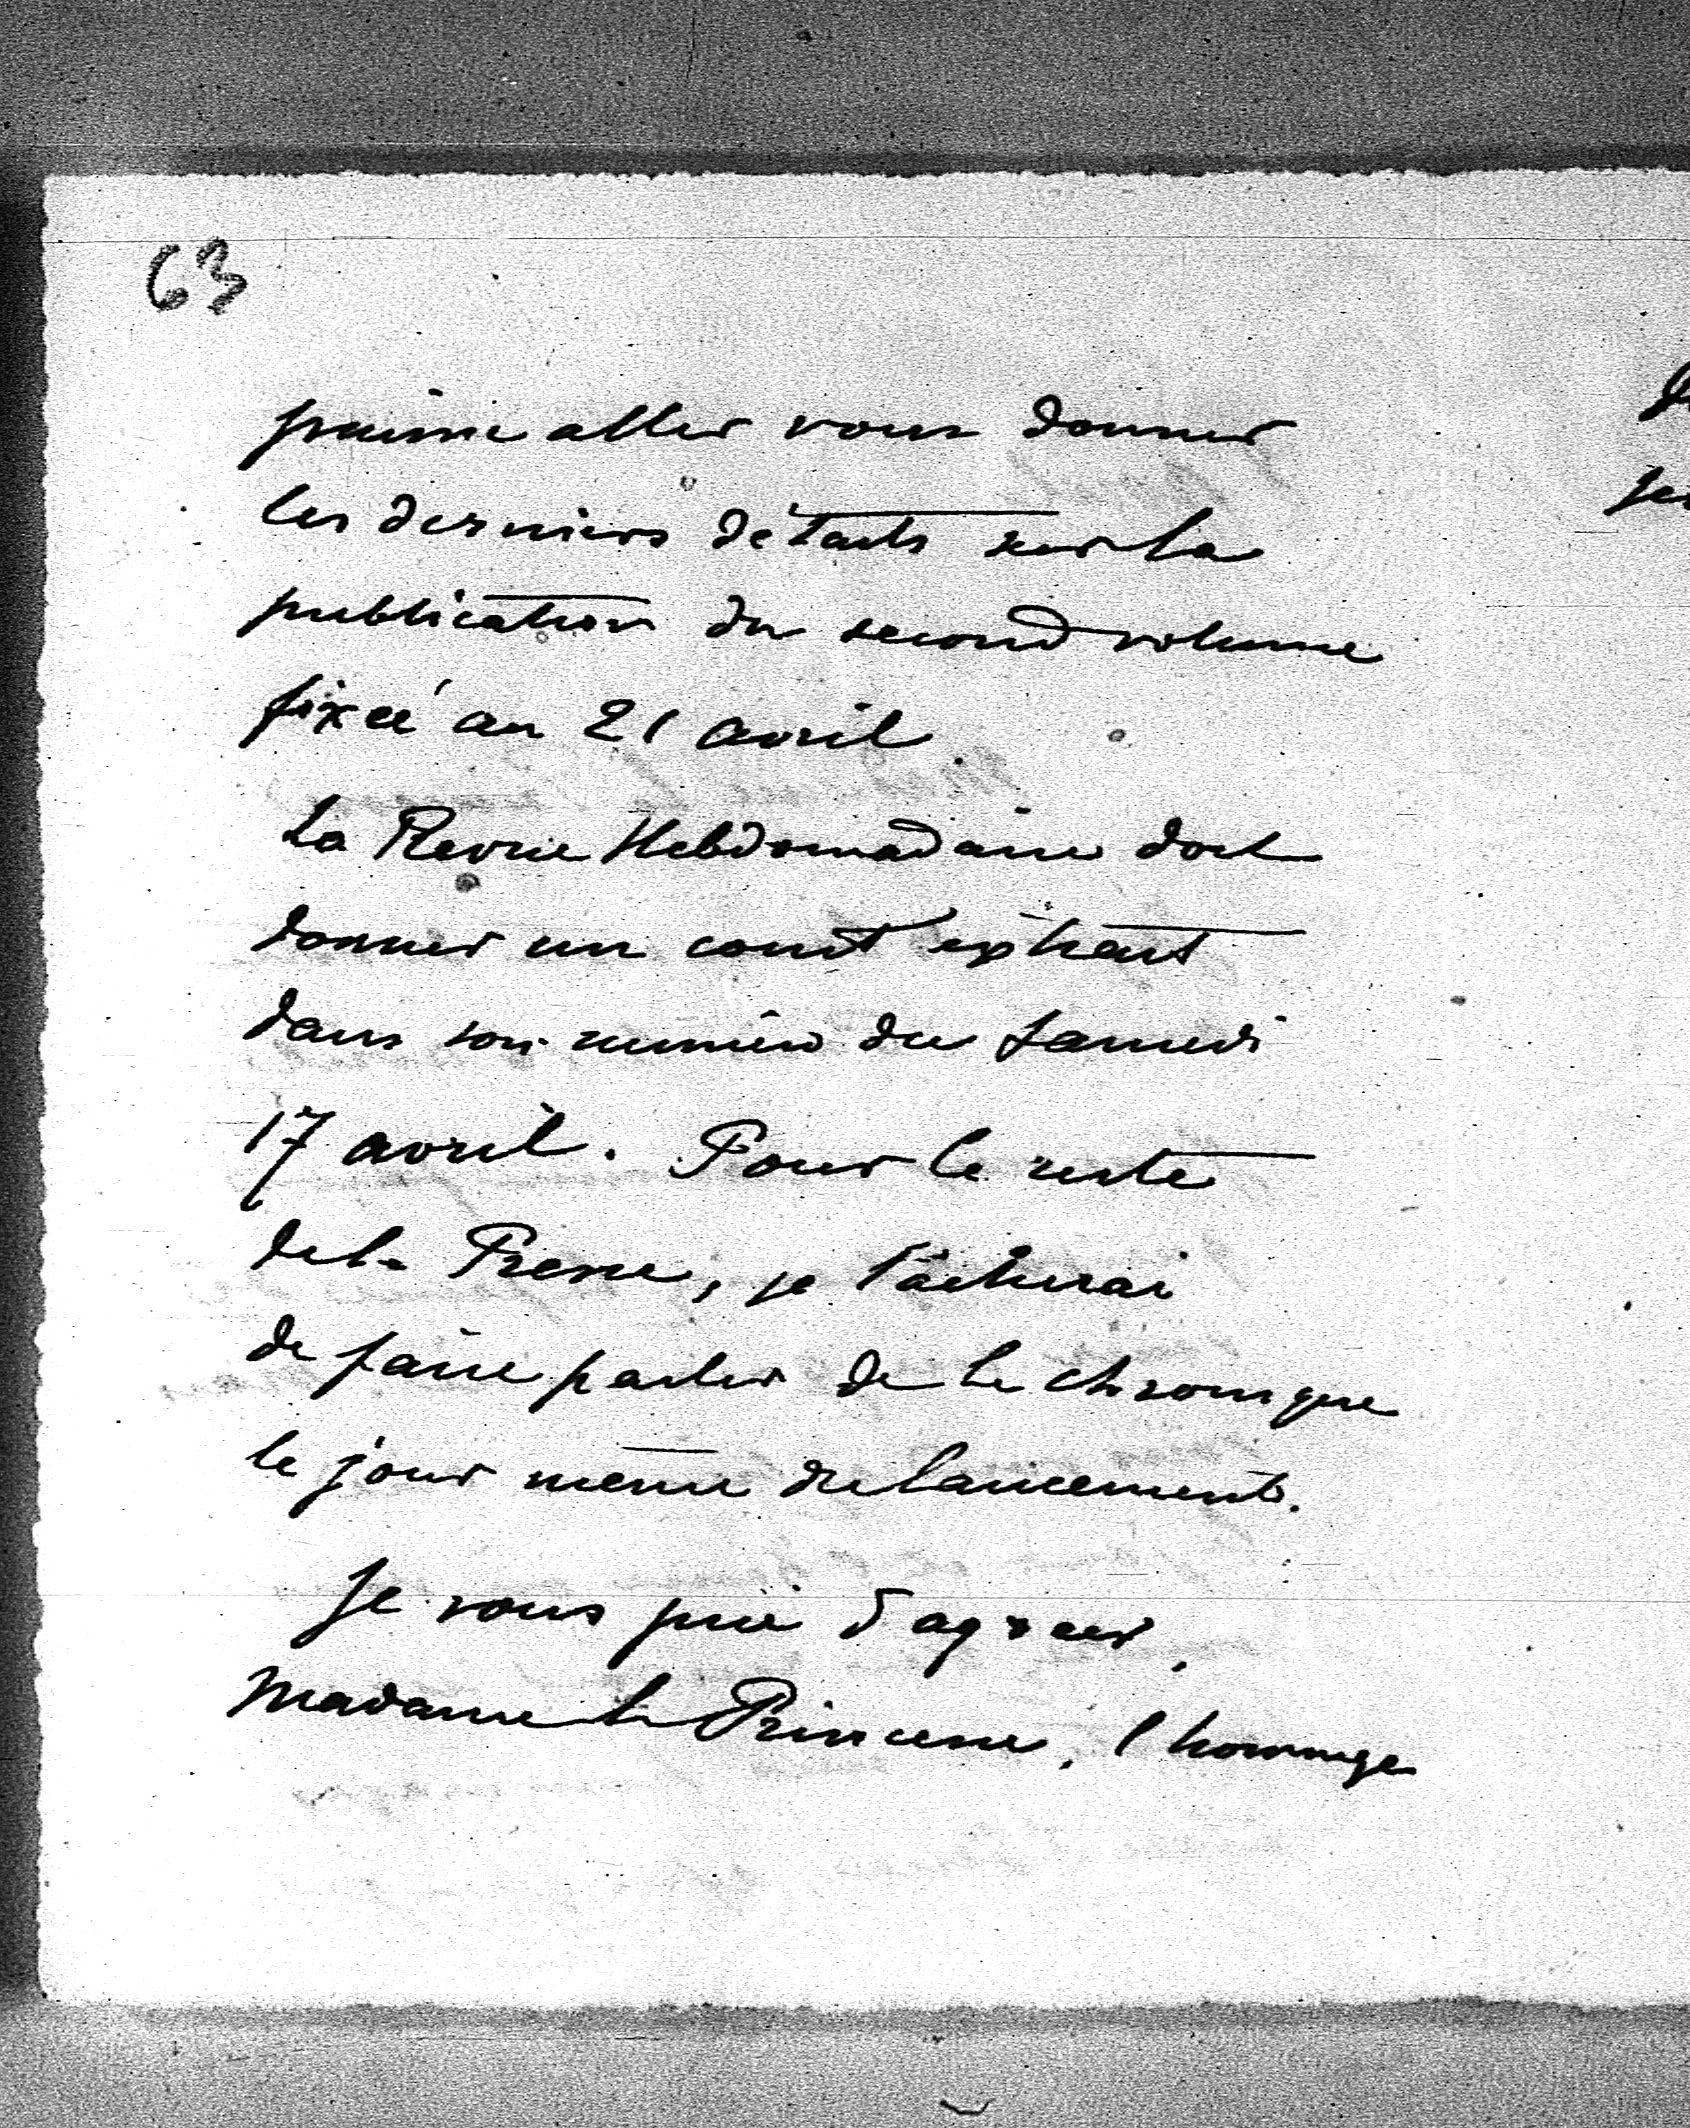 63
puisse aller vous donner
les derniers détails sur la
publication du second volume
fixée au 21 avril.
La Revue Hebdomadaire doit
donner un court extrait
dans son numéro du Samedi
17 avril. Pour le reste
de la Presse, je tâcherai
de faire parler de la chronique
le jour même du lancement.
Je vous prie d'agréer,
Madame la Princesse, l'hommage